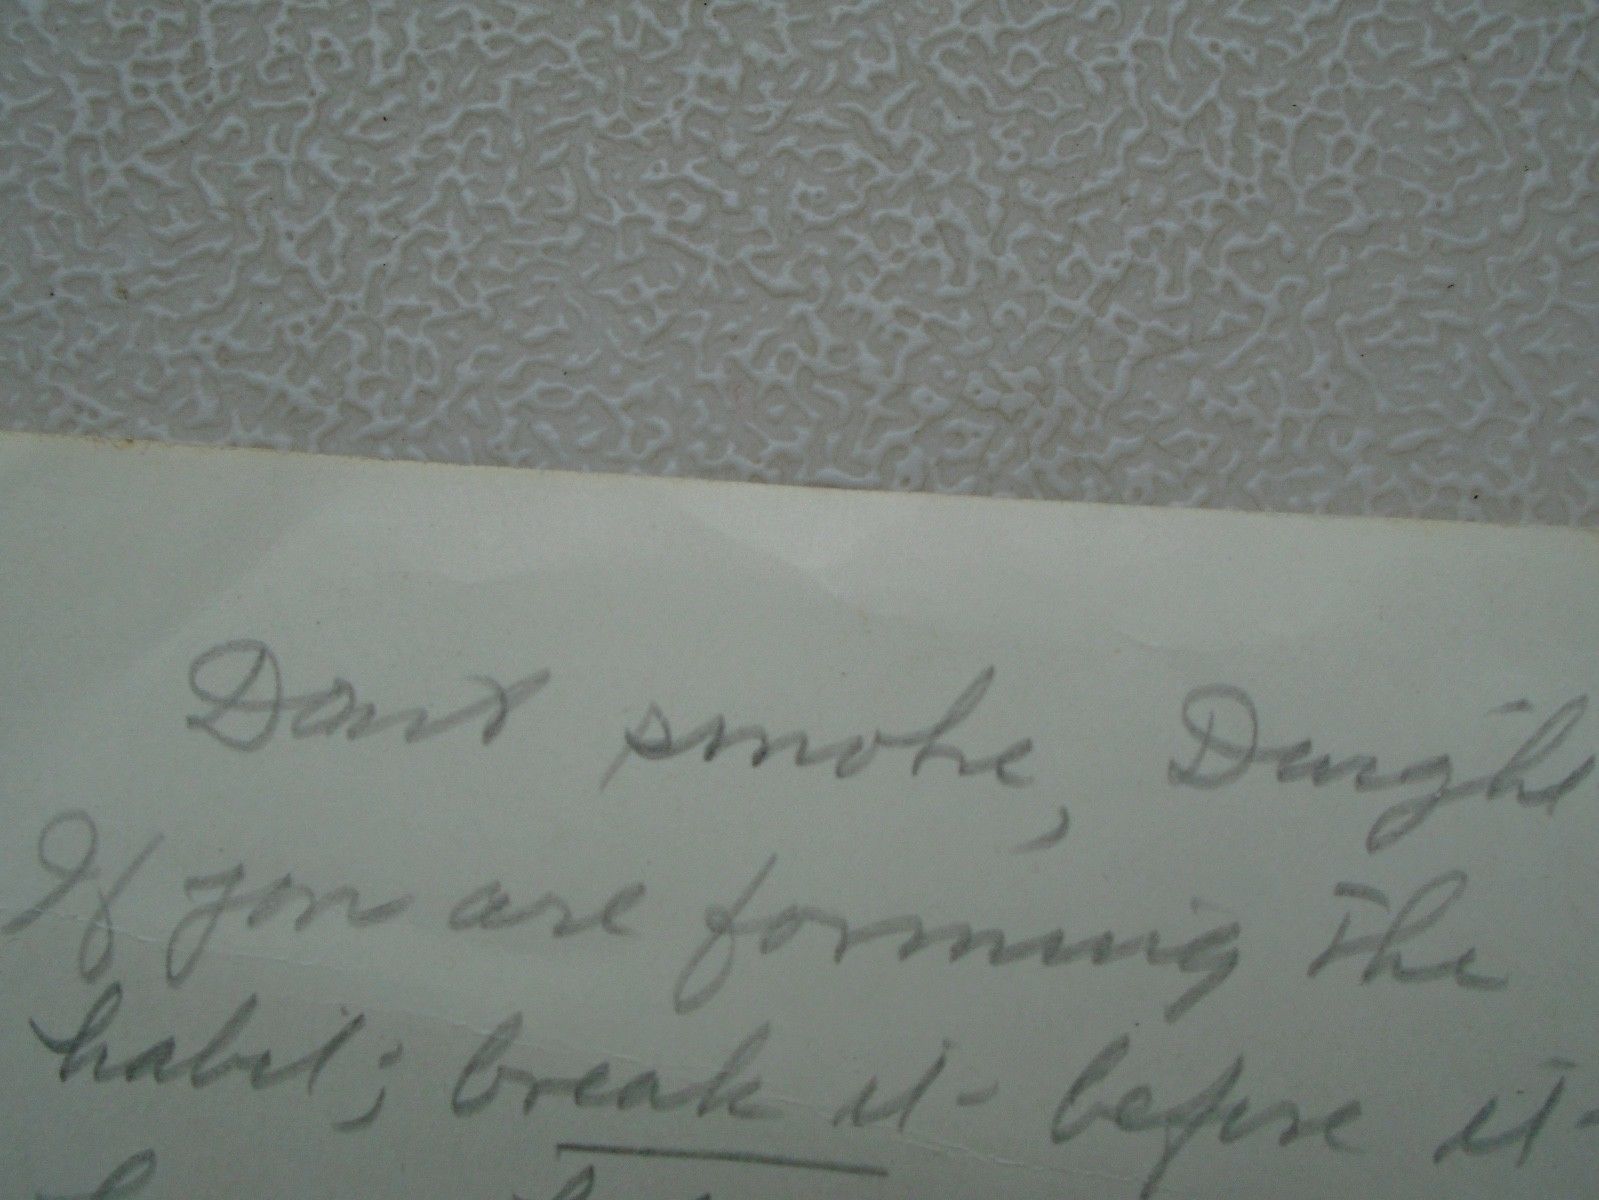 Dont smoke, Dwight
If you are forming the
habit; break it before it